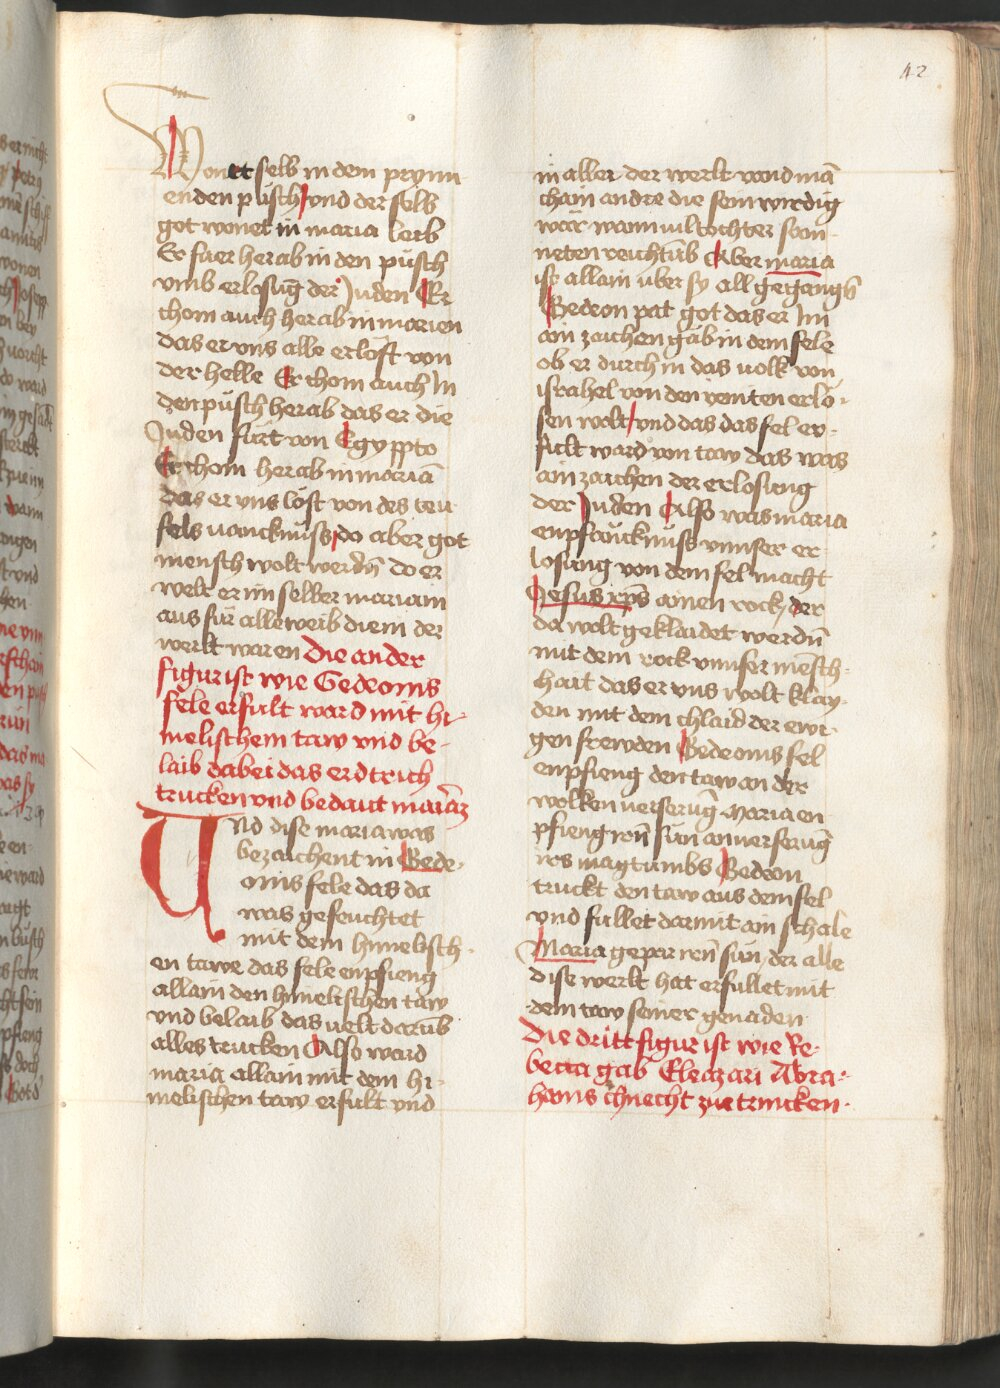 42
Wonet selb in dem prynn
enden püsch vnd der selb
got wonet in maria leib
Er fuer herab in den püsch
vmb erlosūg der Juden Er
chom auch herab in marien
das er vns alle erlöst von
der helle Er chom auch In
den püsch herab das er die
Juden fürt von Egyppto
Er chom herab in mariā
das er vns löst von des teu
fels vancknuss do aber got
mensch wolt werdn̄ do er
welt er im selber mariam
aus für alle weib die in der
werlt waren Die ander
figur ist wie Gedeonis
fele erfult ward mit hi-
melischem taw vnd be-
laib dabei das erdtrich
trucken vnd bedaut mariam
Und dise maria was
bezaichent in Gede-
onis fele das da
was gefeuchtet
mit dem himelisch-
en tawe das fele enpfieng
allain den himelischen taw
vnd belaib das velt darūb
alles trucken Also ward
maria allain mit dem hi-
melischen taw erfult vnd
in aller der werlt ward mā
chain andre die sein wirdig
wär wann vil tochter sam-
neten reichtūb Aber maria
ist allain vber sy all gegangn̄
Gedeon pat got das er Im
ain zaichen gäb in dem fele
ob er durch in das volk von
israhel von den veinten erlö-
sen wolt vnd das das fel er-
fult ward von taw das was
ain zaichen der erlosung
der Juden Also was maria
enpfancknuss vnnser er-
losung von dem fel macht
Jesus xp̄s ainen rock der
da wolt geklaidet werdn̄
mit dem rock vnnser mēsch-
hait das er vns wolt klay-
den mit dem chlaid der ewi-
gen frewden Gedeonis fel
enpfieng den taw an der
wolken verserūg Maria en
pfieng irn̄ sun an verserūg
irs magtumbs Gedeon
truckt den taw aus dem fel
vnd fullet darmit ain schale
Maria gepar irn̄ sun der alle
dise werlt hat erfullet mit
dem taw seiner genaden
Die dritt figur ist wie Re-
becca gab Eleazari Abra-
hams chnecht zue trincken.